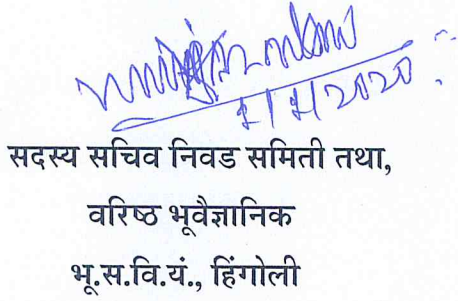 सदस्य सचिव निवड समिती तथा,
वरिष्ठ भूवैज्ञानिक
भू.स.वि.यं., हिंगोली